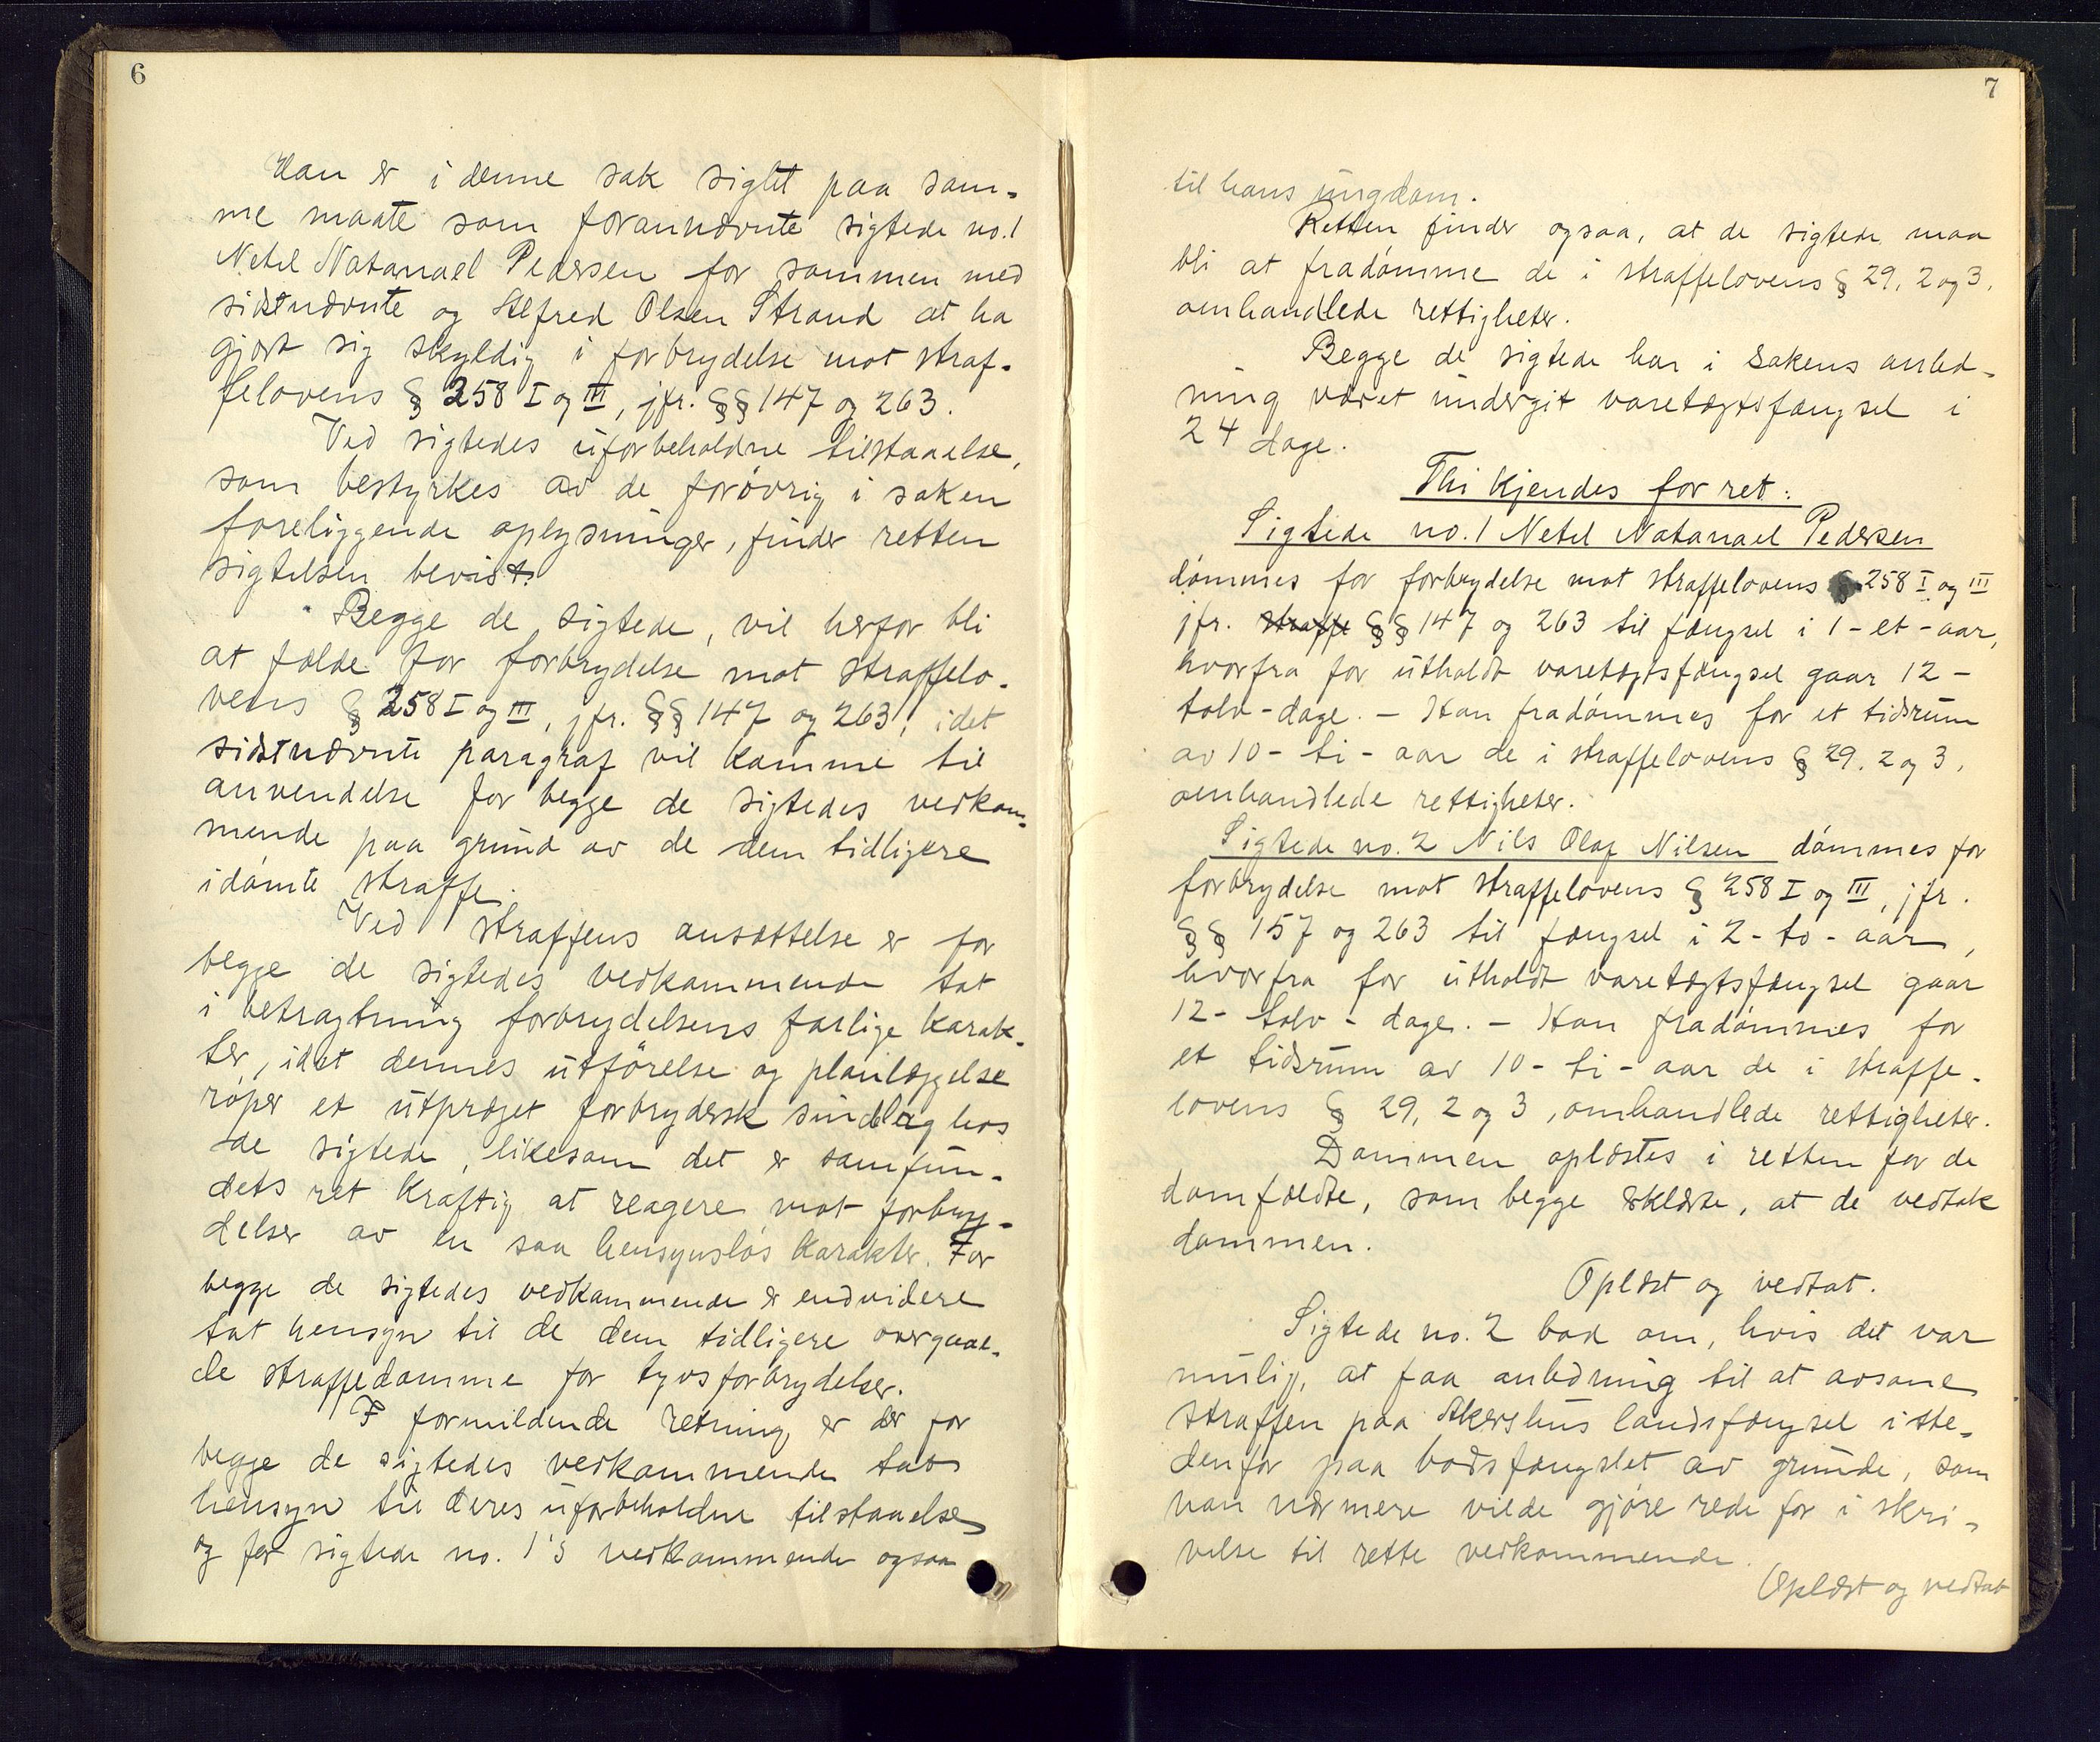 6
Han er i denne sak sigtet paa sam-
me maate som forannævnte sigtede no. 1
Netel Natanael Pedersen for sammen med
sidstnævnte og Alfred Olsen Strand at ha
gjort sig skyldig i forbrydelse mot straf-
felovens § 258 I og III, jfr. §§ 147 og 263.
Ved sigtedes uforbeholdne tilstaaelse,
som bestyrkes av de forøvrig i saken
foreliggende oplysninger, finder retten
sigtelsen bevist.
Begge de sigtede, vil herfor bli
at fælde for forbrydelse mot straffelo-
vens § 258 I og III, jfr. §§ 147 og 263, idet
sidstnævnte paragraf vil komme til
anvendelse for begge de sigtedes vedkom-
mende paa grund av de dem tidligere
idømte straffe.
Ved straffens ansættelse er for
begge de sigtedes vedkommende tat
i betragtning forbrydelsens farlige karak-
ter, idet dennes utførelse og planlæggelse
røper et utpræget forbrydersk sindelag hos
de sigtede, likesom det er samfun-
dets ret kraftig at reagere mot forbry-
delser av en saa hensynsløs karakter. For
begge de sigtedes vedkommende er endvidere
tat hensyn til de dem tidligere overgaae-
de straffedomme for tyvsforbrydelser.
I formildende retning er der for
begge de sigtedes vedkommende tat
hensyn til deres uforbeholdne tilstaaelse
og for sigtede no. 1's vedkommende ogsaa
7
til hans ungdom.
Retten finder ogsaa, at de sigtede maa
bli at fradømme de i straffelovens § 29, 2 og 3,
omhandlede rettigheter.
Begge de sigtede har i sakens anled-
ning været undergit varetægtsfængsel i
24 dage.
Thi kjendes for ret:
Sigtede no. 1 Netel Natanael Pedersen
dømmes for forbrydelse mot straffelovens § 258 I og III
jfr. straffe §§ 147 og 263 til fængsel i 1 - et - aar,
hvorfra for utholdt varetægtsfængsel gaar 12 -
tolv - dage. - Han fradømmes for et tidsrum
av 10 - ti - aar de i straffelovens § 29, 2 og 3,
omhandlede rettigheter.
Sigtede no. 2 Nils Olaf Nilsen dømmes for
forbrydelse mot straffelovens § 258 I og III, jfr.
§§ 157 og 263 til fængsel i 2 - to - aar,
hvorfra for utholdt varetægtsfængsel gaar
12 - tolv - dage. - Han fradømmes for
et tidsrum av 10 - ti - aar de i straffe-
lovens § 29, 2 og 3, omhandlede rettigheter.
Dommen oplæstes i retten for de
domfældte, som begge erklærte, at de vedtok
dommen.
Oplæst og vedtat.
Sigtede no. 2 bad om, hvis det var
mulig, at faa anledning til at avsone
straffen paa Akershus landsfængsel iste-
denfor paa bodsfængslet av grunde, som
han nærmere vilde gjøre rede for i skri-
velse til rette vedkommende.
Oplæst og vedtat